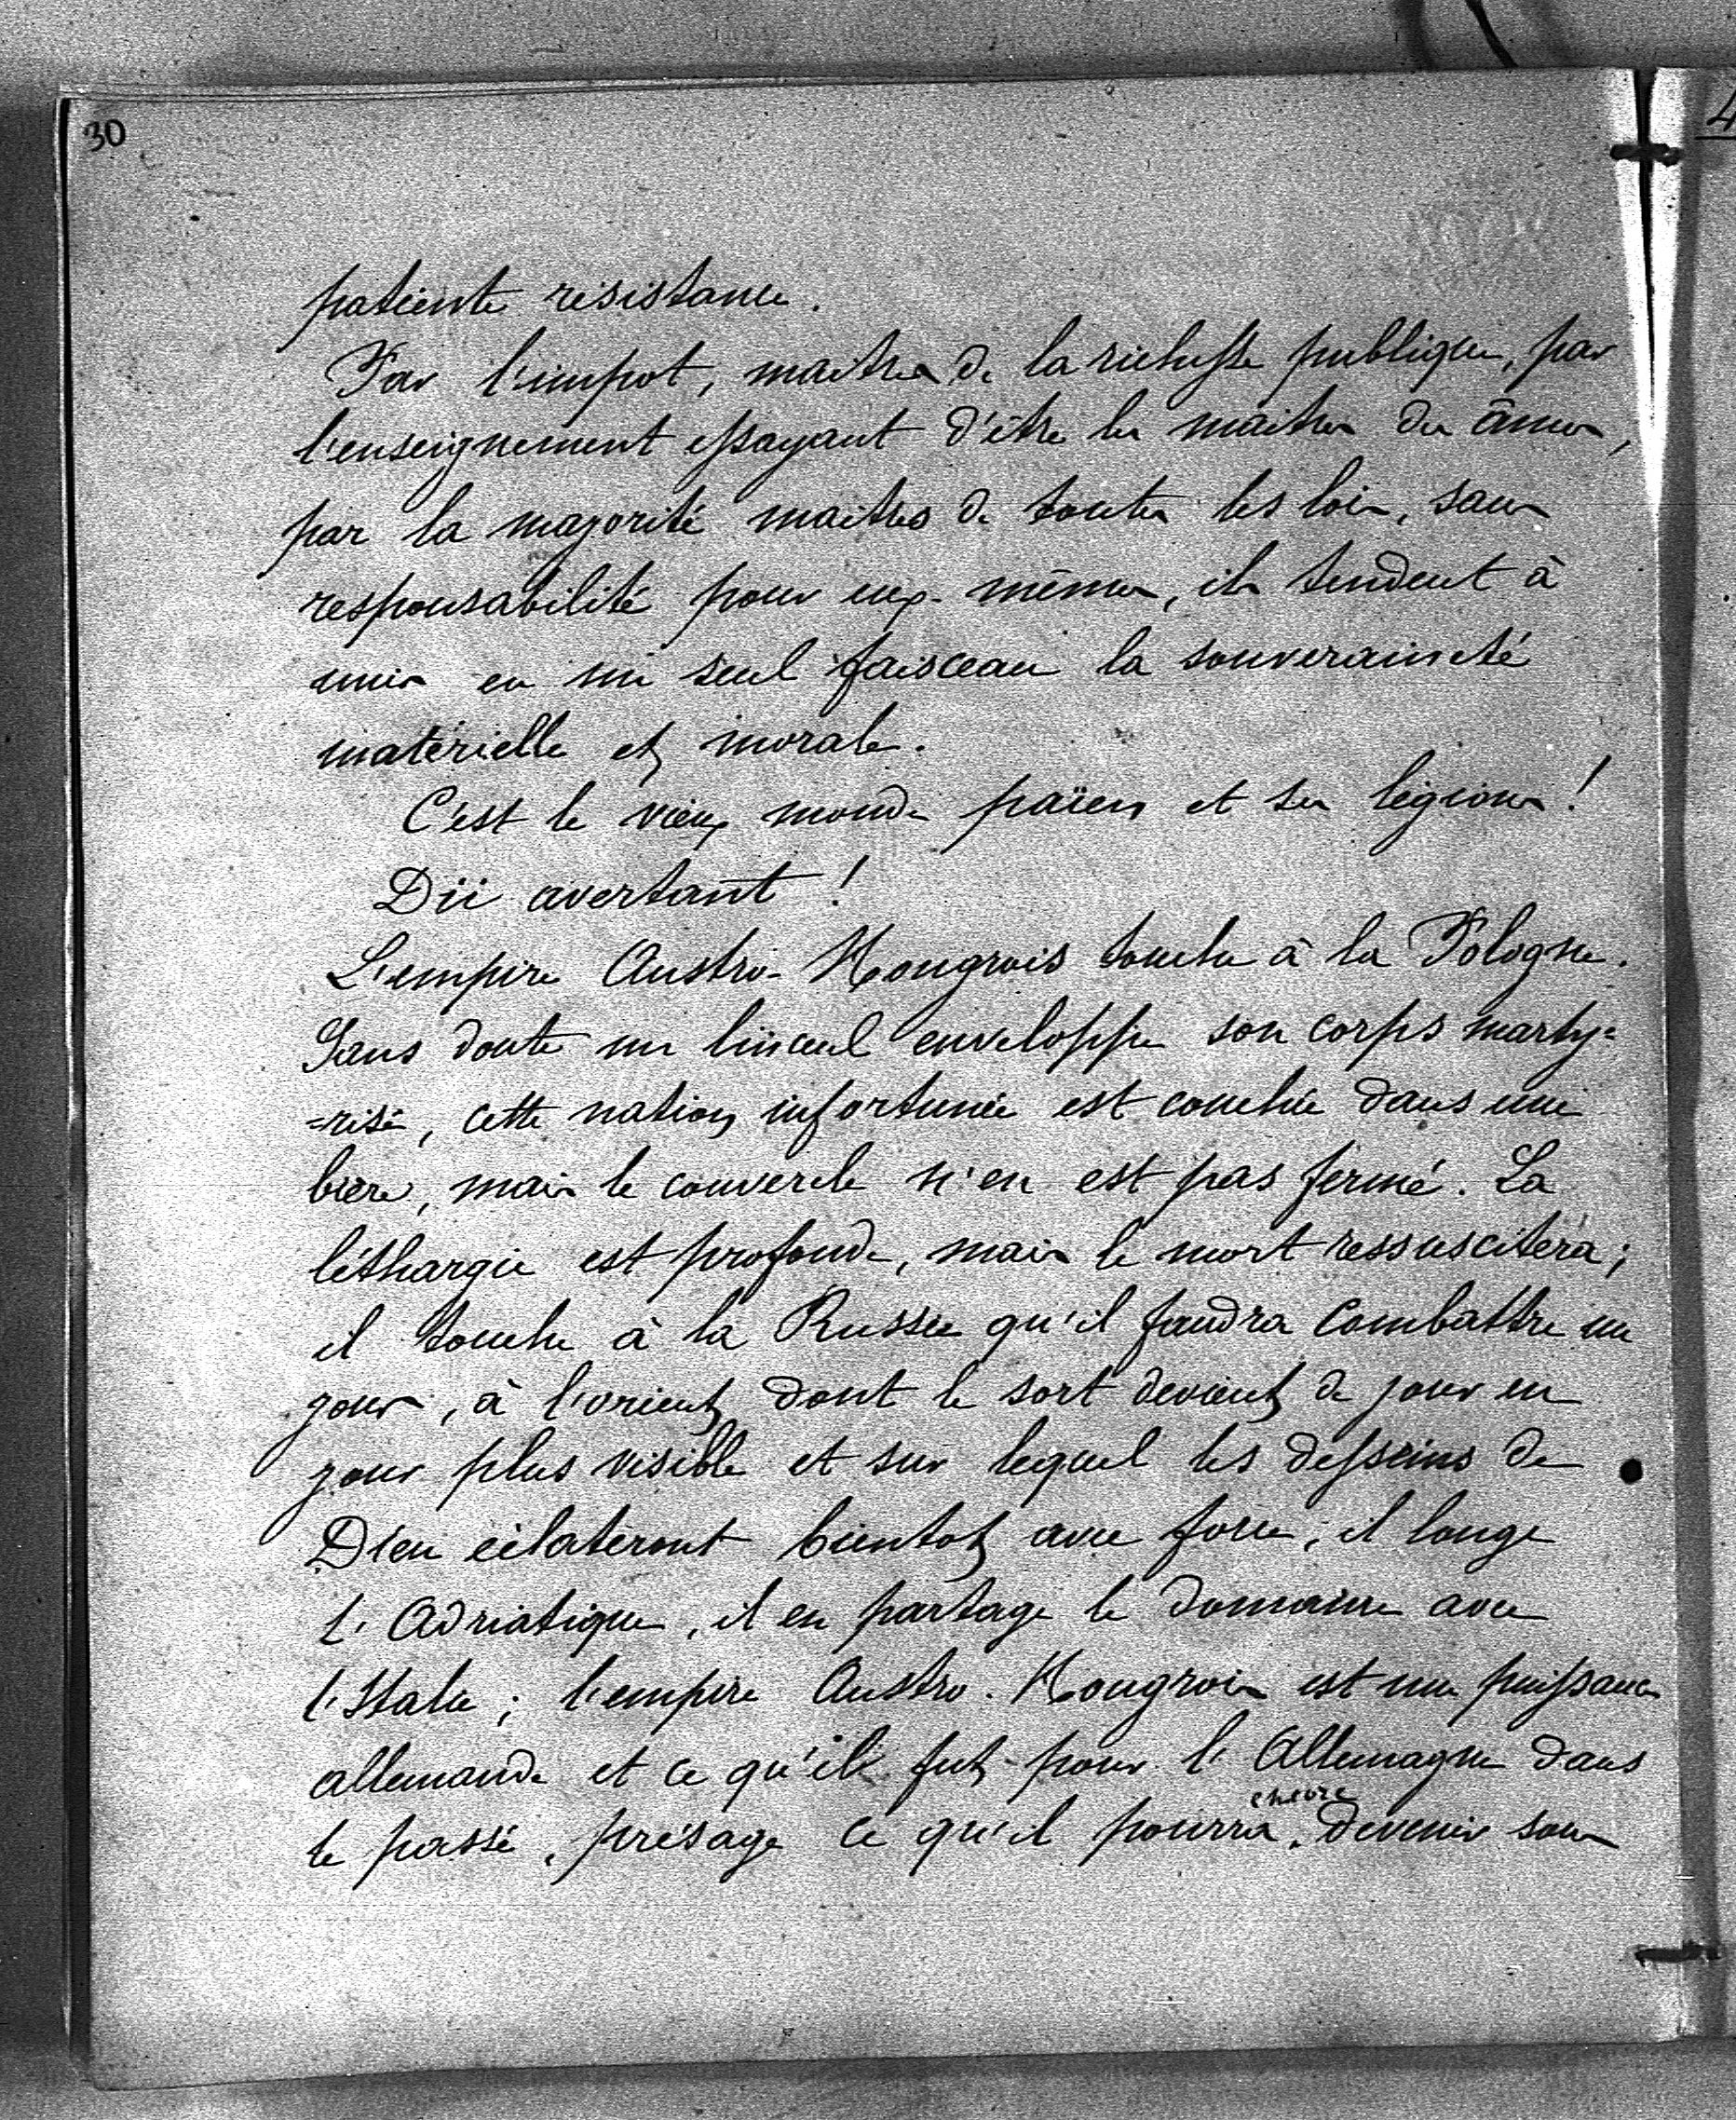 30
patiente résistance.
Par l'impot, maitres de la richesse publique, par
l'enseignement essayant d'être les maitres des âmes,
par la majorité maitres de toutes les lois, sans
responsabilité pour eux-mêmes, ils tendent à
unir en un seul faisceau la souveraineté
matérielle et morale.
C'est le vieux monde païen et ses légions!
Dii avertant!
L'empire Austro-Hongrois touche à la Pologne.
Sans doute un linceul enveloppe son corps marty=
=risé, cette nation infortunée est couchée dans une
bière, mais le couvercle n'en est pas fermé. La
léthargie est profonde, mais le mort ressuscitera;
il touche à la Russie qu'il faudra combattre un
jour, à l'orient dont le sort devient de jour en
jour plus visible et sur lequel les desseins de
Dieu éclateront bientot avec force; il longe
l'Adriatique, il en partage le domaine avec
l'Italie; l'empire Austro-Hongrois est une puissance
allemande et ce qu'il fut pour l'Allemagne dans
le passé, présage ce qu'il pourra encore devenir sous